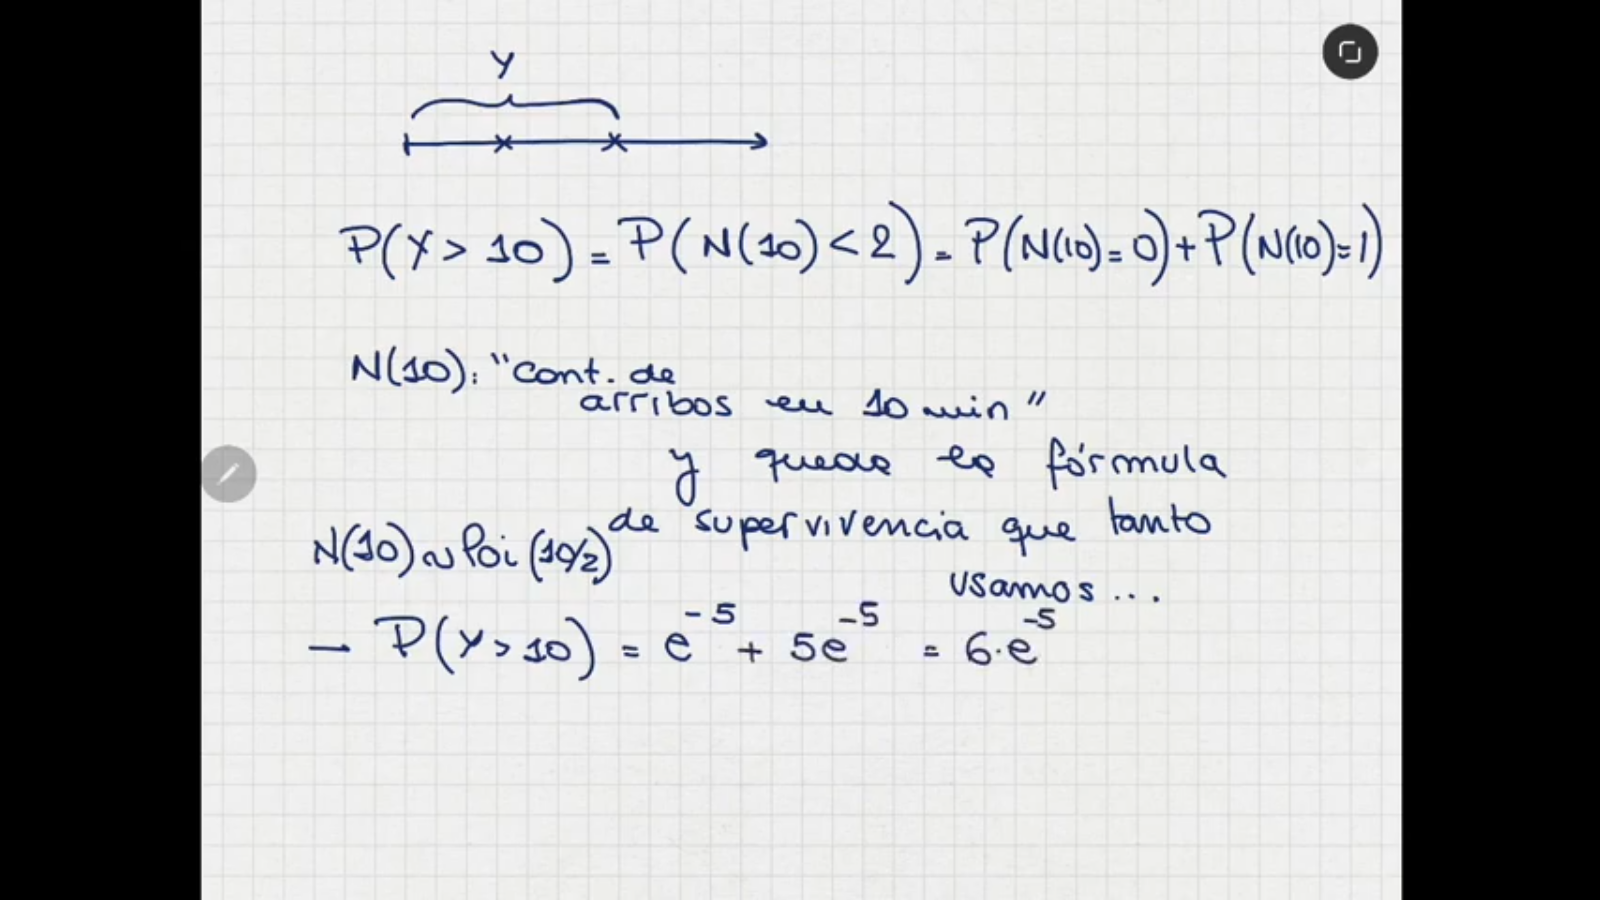 Y
P(Y > 10) = P(N(10) < 2) = P(N(10) = 0) + P(N(10) = 1)
N(10): "cant. de
arribos en 10 min"
y queda la fórmula
de supervivencia que tanto
usamos...
N(10) ~ Poi(10/2)
→ P(Y > 10) = e^-5 + 5e^-5 = 6·e^-5